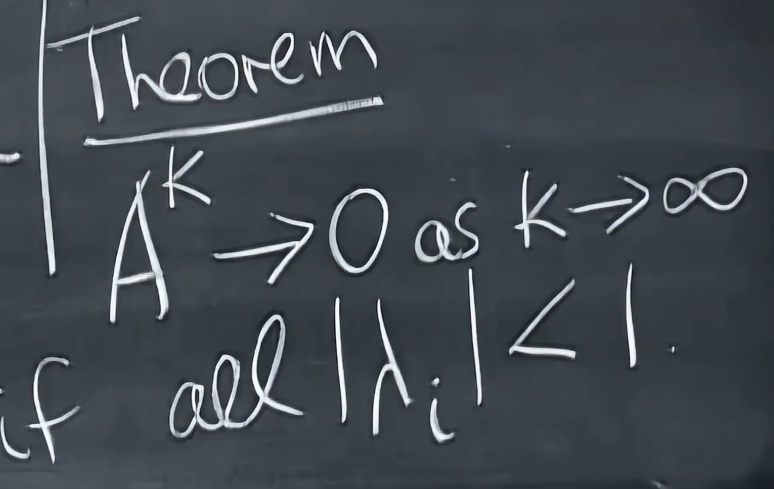 Theorem
A^K → 0 as k → ∞
if all |λ_i| < 1.